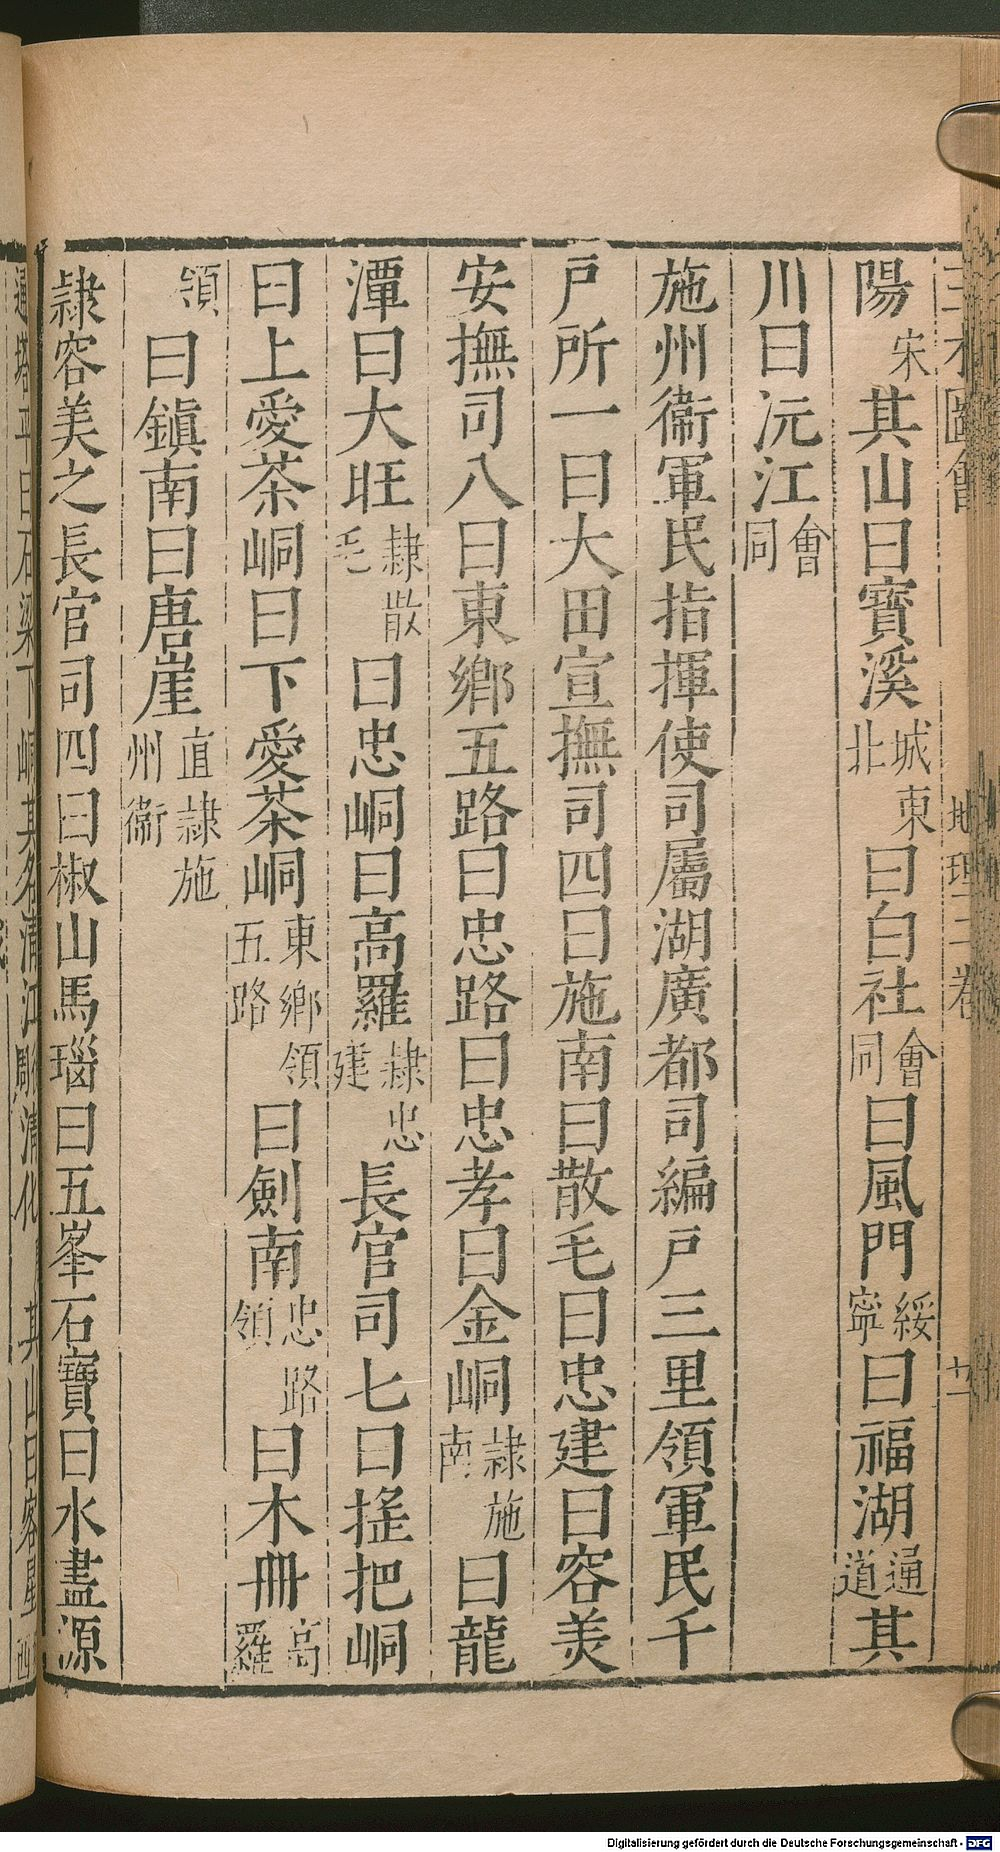 三才圖會 地理三卷 廿一
陽宋其山曰寶溪城東北曰白社會同曰風門綏寧曰福湖通道其
川曰沅江會同
施州衞軍民指揮使司屬湖廣都司編戶三里領軍民千
戶所一曰大田宣撫司四曰施南曰散毛曰忠建曰容美
安撫司八曰東鄉五路曰忠路曰忠孝曰金峒隷施南曰龍
潭曰大旺隷散毛曰忠峒曰高羅隷忠建長官司七曰搖把峒
曰上愛茶峒曰下愛茶峒東鄉五路領曰劍南忠路領曰木冊高羅
領曰鎮南曰唐崖直隷施州衞
隷容美之長官司四曰椒山馬瑙曰五峯石寶曰水盡源
通塔平曰石梁下峒其名清江清化其山曰客星
Digitalisierung gefördert durch die Deutsche Forschungsgemeinschaft - DFG